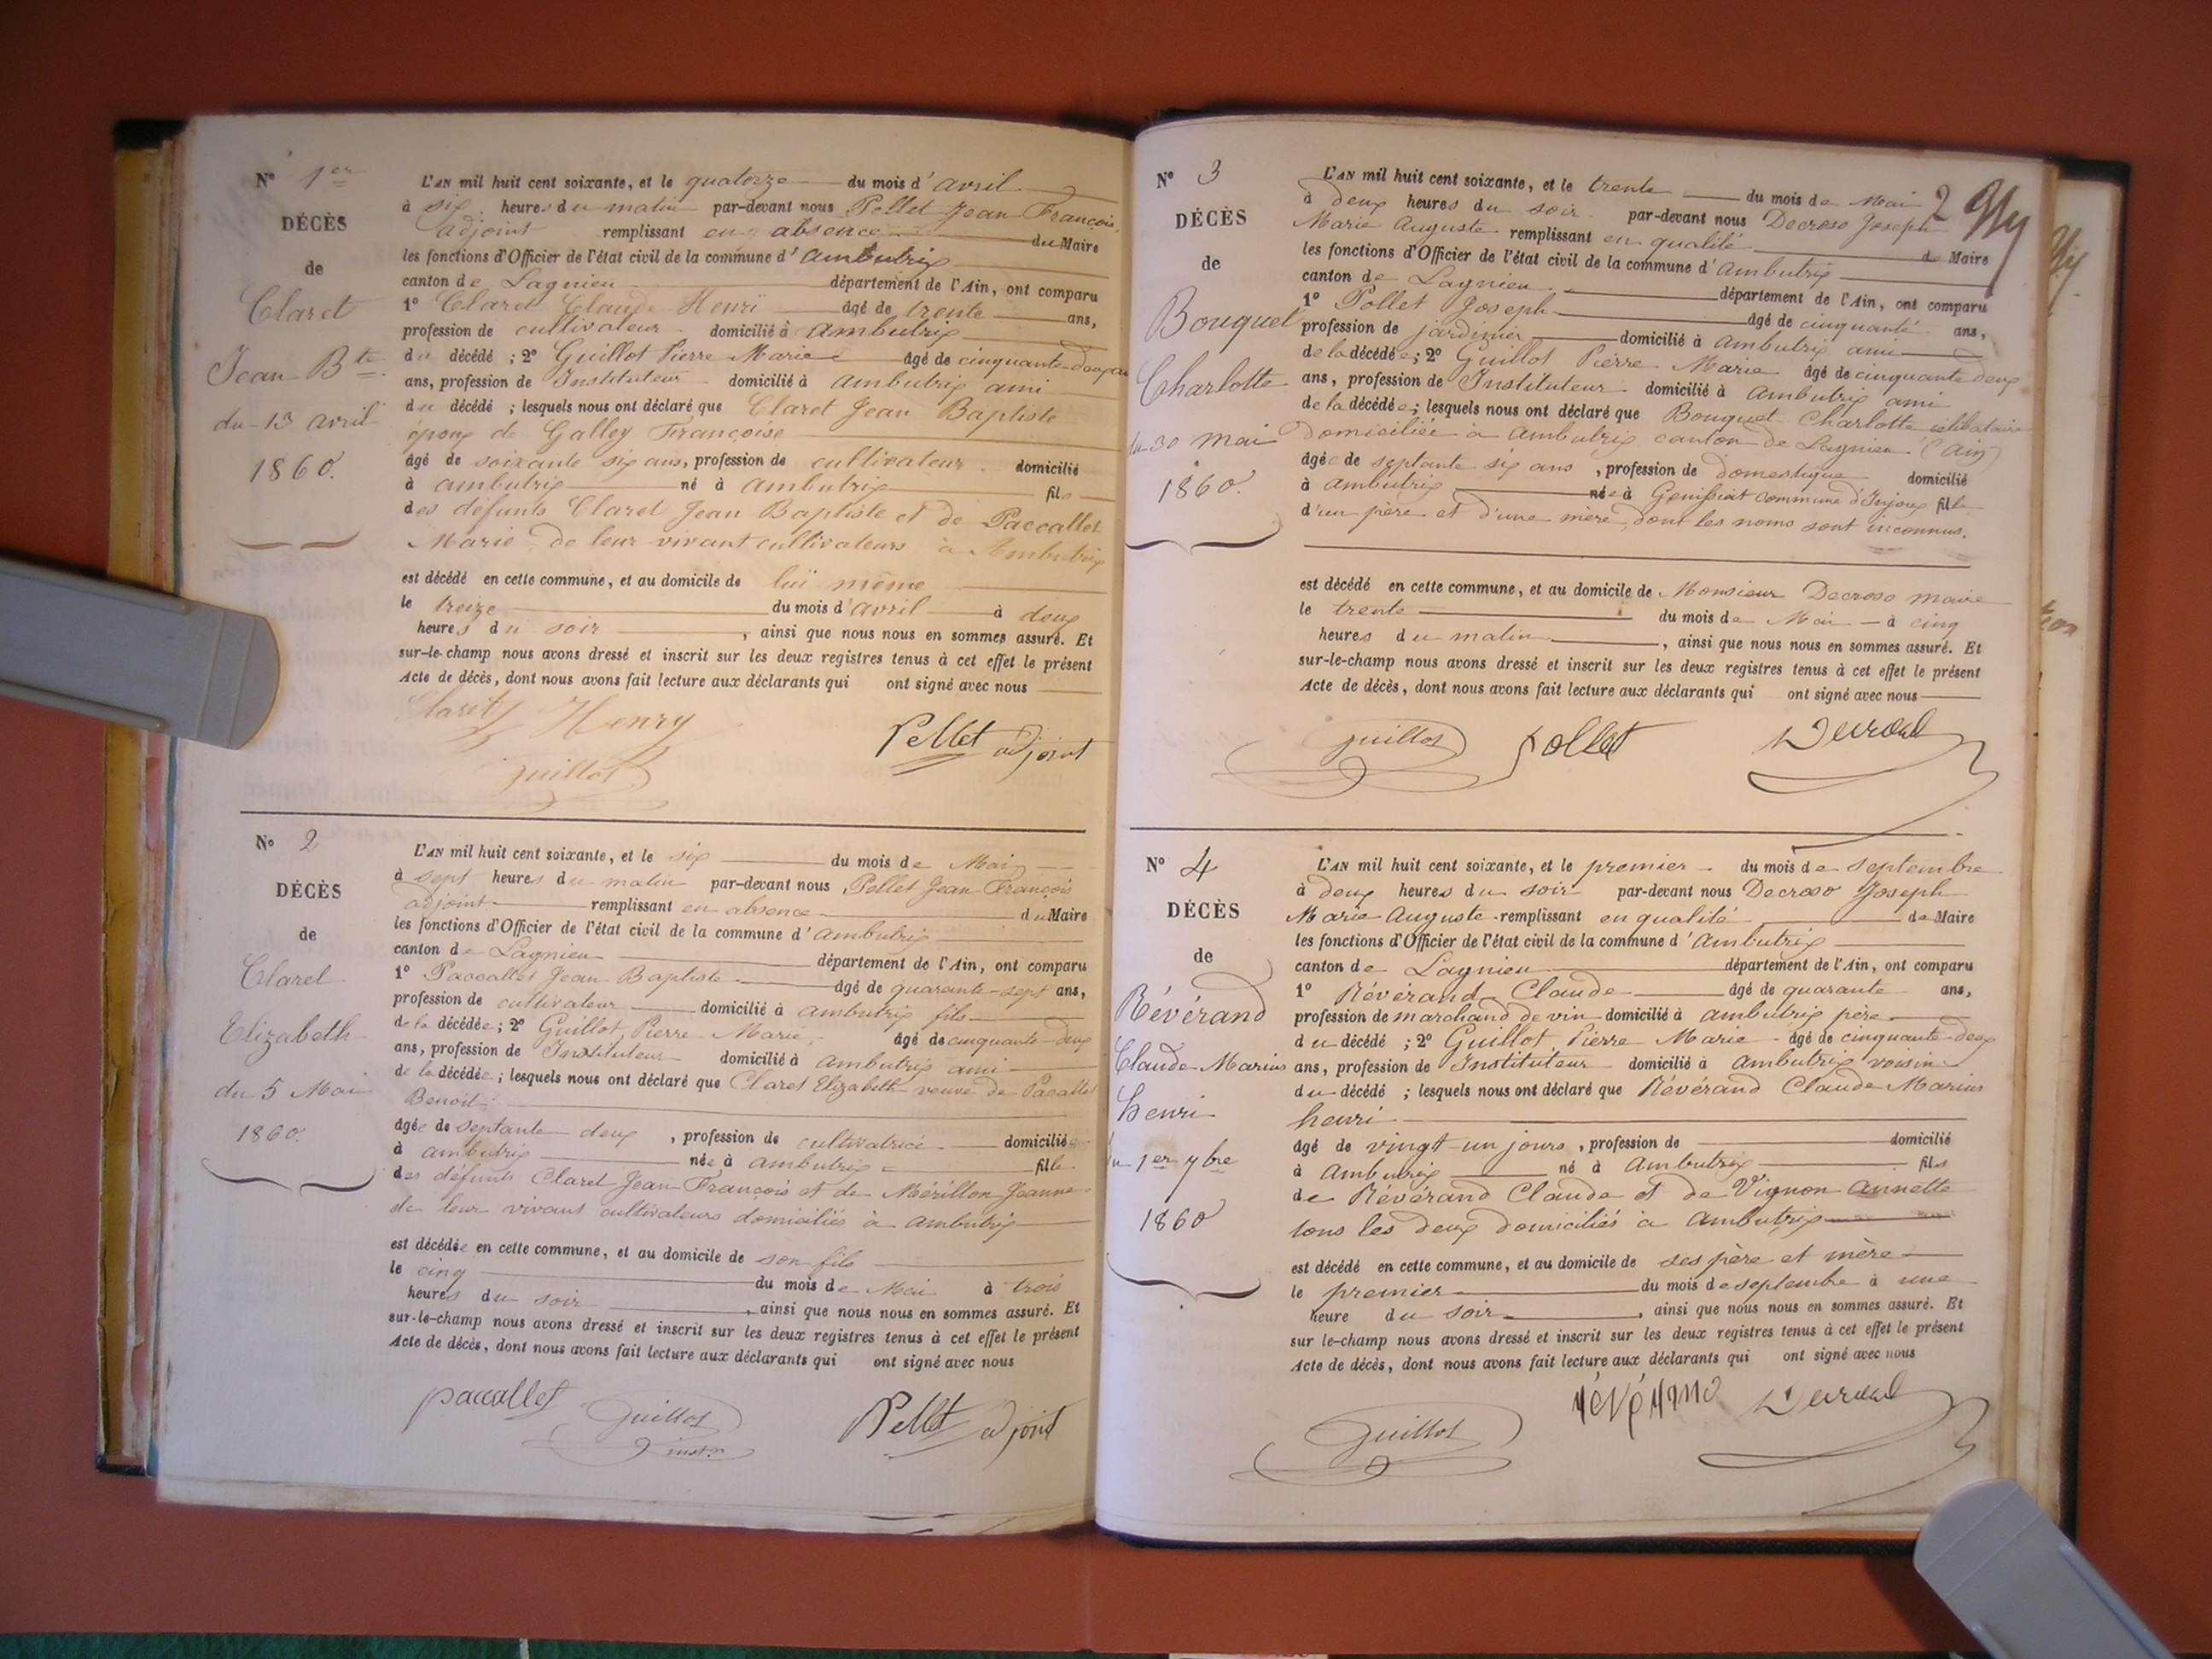 N° 1er
DÉCÈS
de
Claret
Jean Bte.
du 13 avril
1860.
L'AN mil huit cent soixante, et le quatorze du mois d'avril
à six heures du matin par-devant nous Pellet Jean François,
adjoint remplissant en absence du Maire
les fonctions d'Officier de l'état civil de la commune d'Ambutrix
canton de Lagnieu département de l'Ain, ont comparu
1° Claret Claude Henri âgé de trente ans,
profession de cultivateur domicilié à Ambutrix
du décédé ; 2° Guillot Pierre Marie âgé de cinquante-deux ans
ans, profession de Instituteur domicilié à Ambutrix ami
du décédé ; lesquels nous ont déclaré que Claret Jean Baptiste
époux de Galley Françoise
âgé de soixante six ans, profession de cultivateur domicilié
à Ambutrix né à Ambutrix fils
des défunts Claret Jean Baptiste et de Paccallet
Marie de leur vivant cultivateurs à Ambutrix
est décédé en cette commune, et au domicile de lui même
le treize du mois d'avril à deux
heures du soir , ainsi que nous nous en sommes assuré. Et
sur-le-champ nous avons dressé et inscrit sur les deux registres tenus à cet effet le présent
Acte de décès, dont nous avons fait lecture aux déclarants qui ont signé avec nous
Claret Henry
Pellet adjoint
Guillot
N° 2
DÉCÈS
de
Claret
Elizabeth
du 5 Mai
1860.
L'AN mil huit cent soixante, et le six du mois de Mai
à sept heures du matin par-devant nous Pellet Jean François
adjoint remplissant en absence du Maire
les fonctions d'Officier de l'état civil de la commune d'Ambutrix
canton de Lagnieu département de l'Ain, ont comparu
1° Paccallet Jean Baptiste âgé de quarante-sept ans,
profession de cultivateur domicilié à Ambutrix fils
de la décédée ; 2° Guillot Pierre Marie, âgé de cinquante-deux
ans, profession de Instituteur domicilié à Ambutrix ami
de la décédée ; lesquels nous ont déclaré que Claret Elizabeth veuve de Pacallet
Benoit
âgée de septante deux , profession de cultivatrice domiciliée
à Ambutrix née à Ambutrix fille
des défunts Claret Jean François et de Mérillon Jeanne
de leur vivant cultivateurs domiciliés à Ambutrix
est décédée en cette commune, et au domicile de son fils
le cinq du mois de Mai à trois
heures du soir , ainsi que nous nous en sommes assuré. Et
sur-le-champ nous avons dressé et inscrit sur les deux registres tenus à cet effet le présent
Acte de décès, dont nous avons fait lecture aux déclarants qui ont signé avec nous
paccallet
Guillot
instr.
Pellet adjoint
2
N° 3
DÉCÈS
de
Bouquet
Charlotte
du 30 mai
1860.
L'AN mil huit cent soixante, et le trente du mois de Mai
à deux heures du soir par-devant nous Decroso Joseph
Marie Auguste remplissant en qualité de Maire
les fonctions d'Officier de l'état civil de la commune d'Ambutrix
canton de Lagnieu département de l'Ain, ont comparu
1° Pollet Joseph âgé de cinquante ans,
profession de jardinier domicilié à Ambutrix ami
de la décédée ; 2° Guillot Pierre Marie âgé de cinquante deux
ans, profession de Instituteur domicilié à Ambutrix ami
de la décédée ; lesquels nous ont déclaré que Bouquet Charlotte célibataire
domiciliée à Ambutrix canton de Lagnieu (Ain)
âgée de septante six ans , profession de domestique domicilié
à Ambutrix née à Genissiat commune d'Injoux fille
d'un père et d'une mère dont les noms sont inconnus.
est décédé en cette commune, et au domicile de Monsieur Decroso maire
le trente du mois de Mai à cinq
heures du matin , ainsi que nous nous en sommes assuré. Et
sur-le-champ nous avons dressé et inscrit sur les deux registres tenus à cet effet le présent
Acte de décès, dont nous avons fait lecture aux déclarants qui ont signé avec nous
Guillot
Pollet
N° 4
DÉCÈS
de
Révérand
Claude-Marius
henri
du 1er 7bre
1860
L'AN mil huit cent soixante, et le premier du mois de septembre
à deux heures du soir par-devant nous Decroso Joseph
Marie Auguste remplissant en qualité de Maire
les fonctions d'Officier de l'état civil de la commune d'Ambutrix
canton de Lagnieu département de l'Ain, ont comparu
1° Révérand Claude âgé de quarante ans,
profession de marchand de vin domicilié à Ambutrix père
du décédé ; 2° Guillot Pierre Marie âgé de cinquante-deux
ans, profession de Instituteur domicilié à Ambutrix voisin
du décédé ; lesquels nous ont déclaré que Révérand Claude Marius
henri
âgé de vingt-un jours , profession de domicilié
à Ambutrix né à Ambutrix fils
de Révérand Claude et de Vignon annette
tous les deux domiciliés à Ambutrix
est décédé en cette commune, et au domicile de ses père et mère
le premier du mois de septembre à une
heure du soir , ainsi que nous nous en sommes assuré. Et
sur le-champ nous avons dressé et inscrit sur les deux registres tenus à cet effet le présent
Acte de décès, dont nous avons fait lecture aux déclarants qui ont signé avec nous
Guillot
révérand